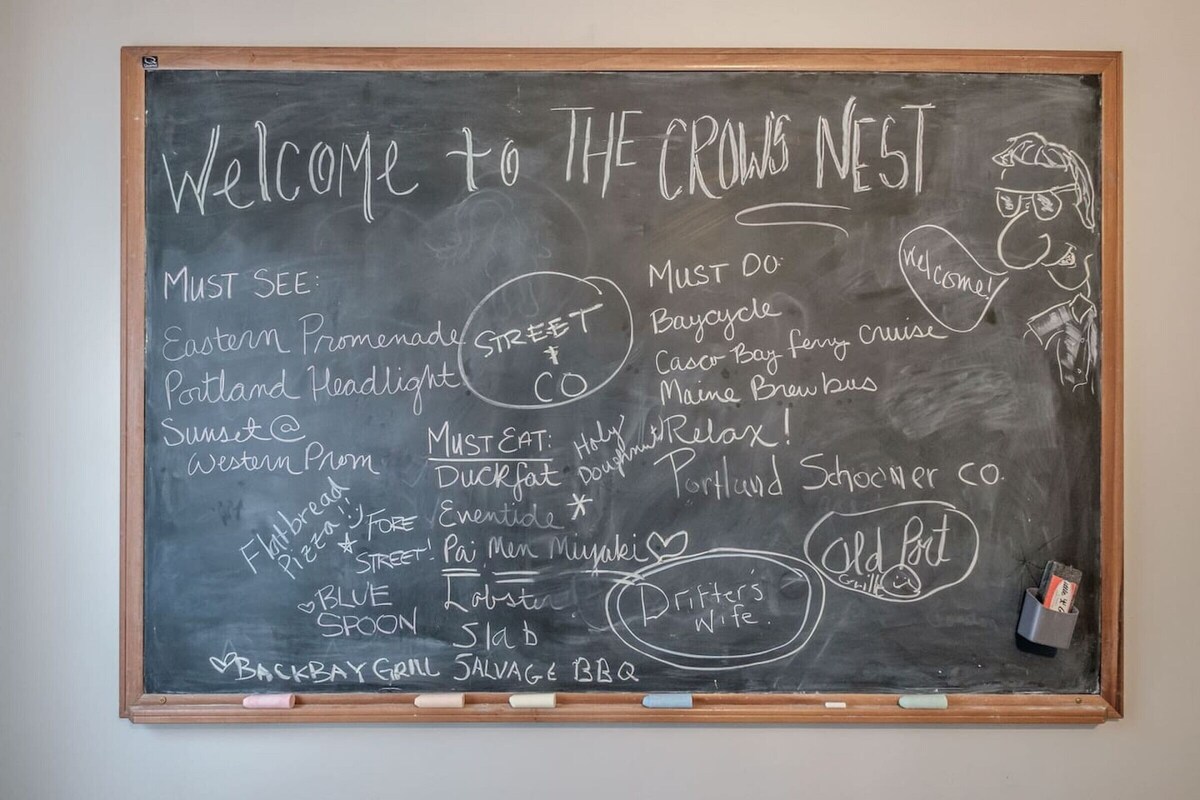 Welcome to THE CROW'S NEST
Welcome!
MUST SEE:
Eastern Promenade
Portland Headlight
Sunset @
Western Prom
STREET
+
CO
MUST DO:
Baycycle
Casco Bay ferry cruise
Maine Brewbus
Relax!
Portland Schooner co.
MUST EAT:
Duckfat
Holy
Doughnut
Eventide *
Pai Men Miyaki
Lobster
Slab
SALVAGE BBQ
Flatbread
Pizza!!
FORE
STREET!
BLUE
SPOON
BACKBAY GRILL
Drifter's
Wife.
Old Port
Grill